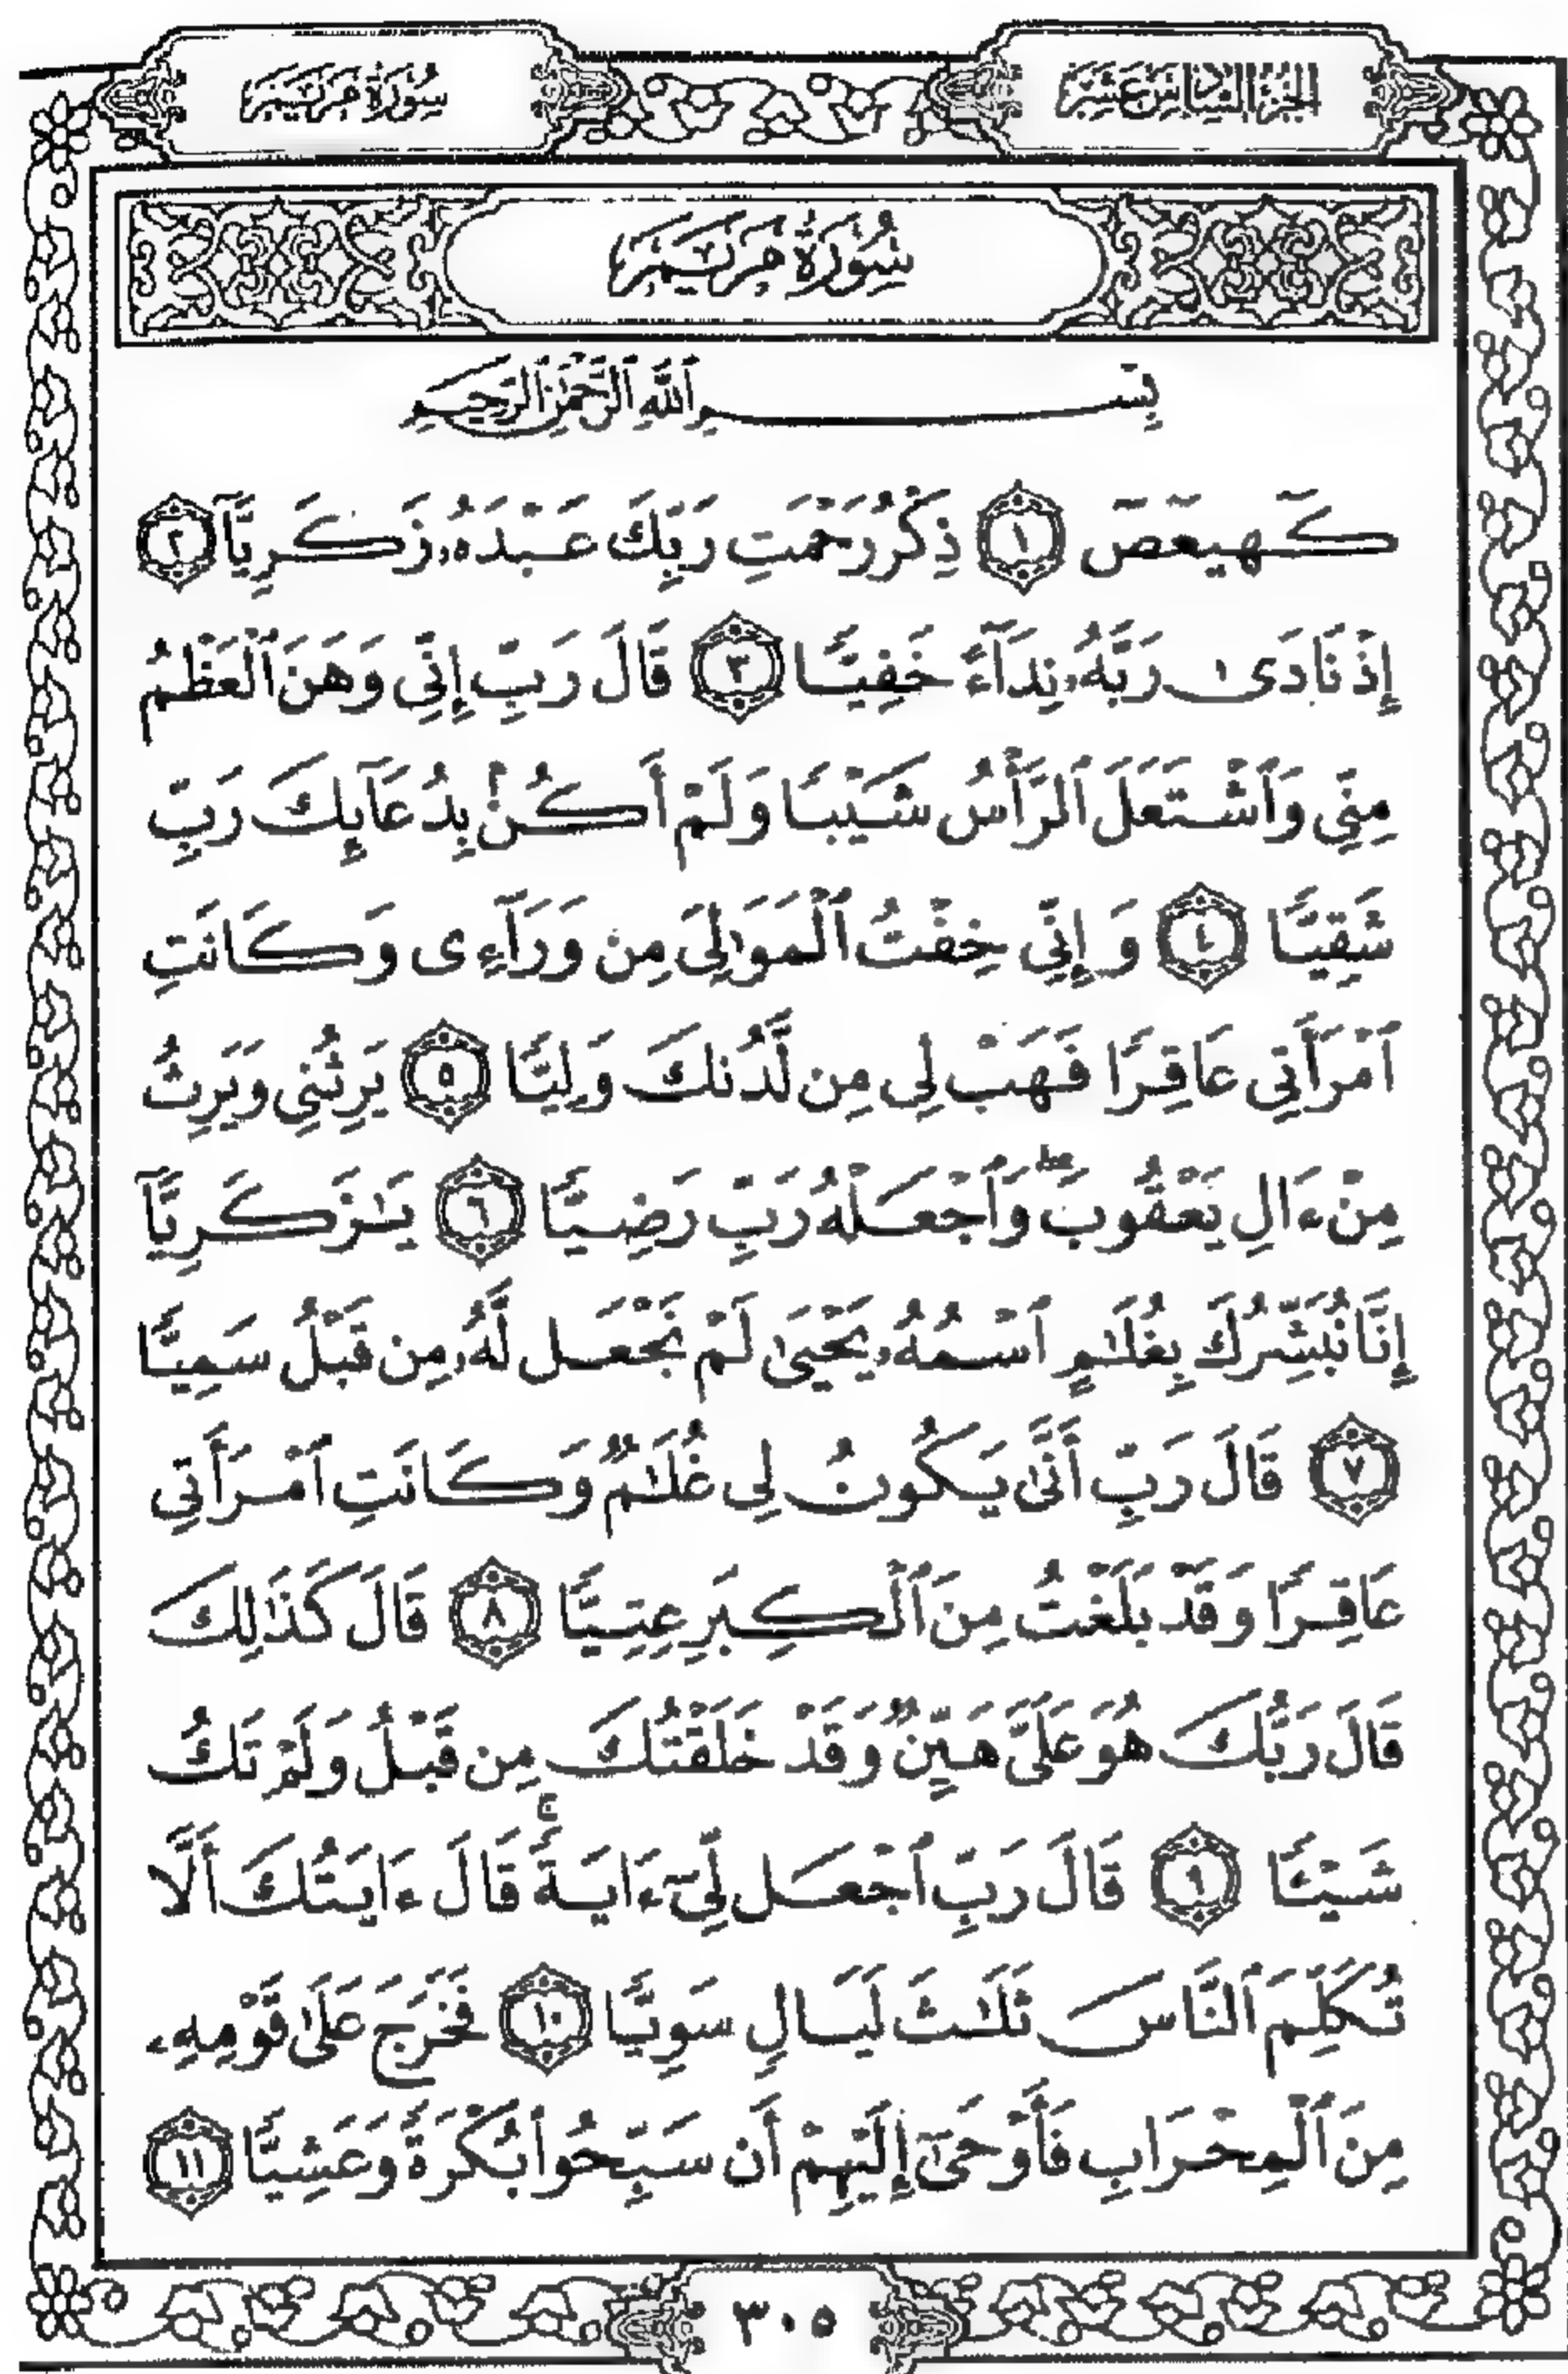 الجزء السادس عشر
سورة مريم
سُورَةُ مَرْيَمَ
بِسْمِ ٱللَّهِ ٱلرَّحْمَٰنِ ٱلرَّحِيمِ
كٓهيعٓصٓ ١ ذِكْرُ رَحْمَتِ رَبِّكَ عَبْدَهُۥ زَكَرِيَّآ ٢
إِذْ نَادَىٰ رَبَّهُۥ نِدَآءً خَفِيًّا ٣ قَالَ رَبِّ إِنِّى وَهَنَ ٱلْعَظْمُ
مِنِّى وَٱشْتَعَلَ ٱلرَّأْسُ شَيْبًا وَلَمْ أَكُنۢ بِدُعَآئِكَ رَبِّ
شَقِيًّا ٤ وَإِنِّى خِفْتُ ٱلْمَوَٰلِىَ مِن وَرَآءِى وَكَانَتِ
ٱمْرَأَتِى عَاقِرًا فَهَبْ لِى مِن لَّدُنكَ وَلِيًّا ٥ يَرِثُنِى وَيَرِثُ
مِنْ ءَالِ يَعْقُوبَ ۖ وَٱجْعَلْهُ رَبِّ رَضِيًّا ٦ يَٰزَكَرِيَّآ
إِنَّا نُبَشِّرُكَ بِغُلَٰمٍ ٱسْمُهُۥ يَحْيَىٰ لَمْ نَجْعَل لَّهُۥ مِن قَبْلُ سَمِيًّا
٧ قَالَ رَبِّ أَنَّىٰ يَكُونُ لِى غُلَٰمٌ وَكَانَتِ ٱمْرَأَتِى
عَاقِرًا وَقَدْ بَلَغْتُ مِنَ ٱلْكِبَرِ عِتِيًّا ٨ قَالَ كَذَٰلِكَ
قَالَ رَبُّكَ هُوَ عَلَىَّ هَيِّنٌ وَقَدْ خَلَقْتُكَ مِن قَبْلُ وَلَمْ تَكُ
شَيْـًٔا ٩ قَالَ رَبِّ ٱجْعَل لِّىٓ ءَايَةً ۚ قَالَ ءَايَتُكَ أَلَّا
تُكَلِّمَ ٱلنَّاسَ ثَلَٰثَ لَيَالٍ سَوِيًّا ١٠ فَخَرَجَ عَلَىٰ قَوْمِهِۦ
مِنَ ٱلْمِحْرَابِ فَأَوْحَىٰٓ إِلَيْهِمْ أَن سَبِّحُوا۟ بُكْرَةً وَعَشِيًّا ١١
٣٠٥